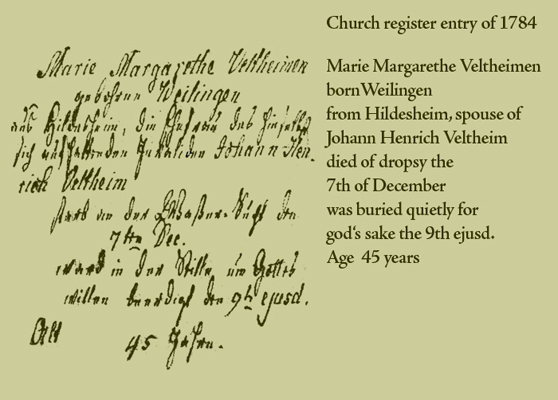 Marie Margarethe Veltheimen
gebohrne Weilingen
aus Hildesheim, die Ehefrau des hieselbst
sich aufhaltenden Johann Hen-
rich Veltheim
starb an der Wasser-Sucht den
7ten Dec.
ward in der Stille um Gottes
willen beerdigt den 9t ejusd.
Alt 45 Jahre.
Church register entry of 1784
Marie Margarethe Veltheimen
bornWeilingen
from Hildesheim, spouse of
Johann Henrich Veltheim
died of dropsy the
7th of December
was buried quietly for
god's sake the 9th ejusd.
Age 45 years